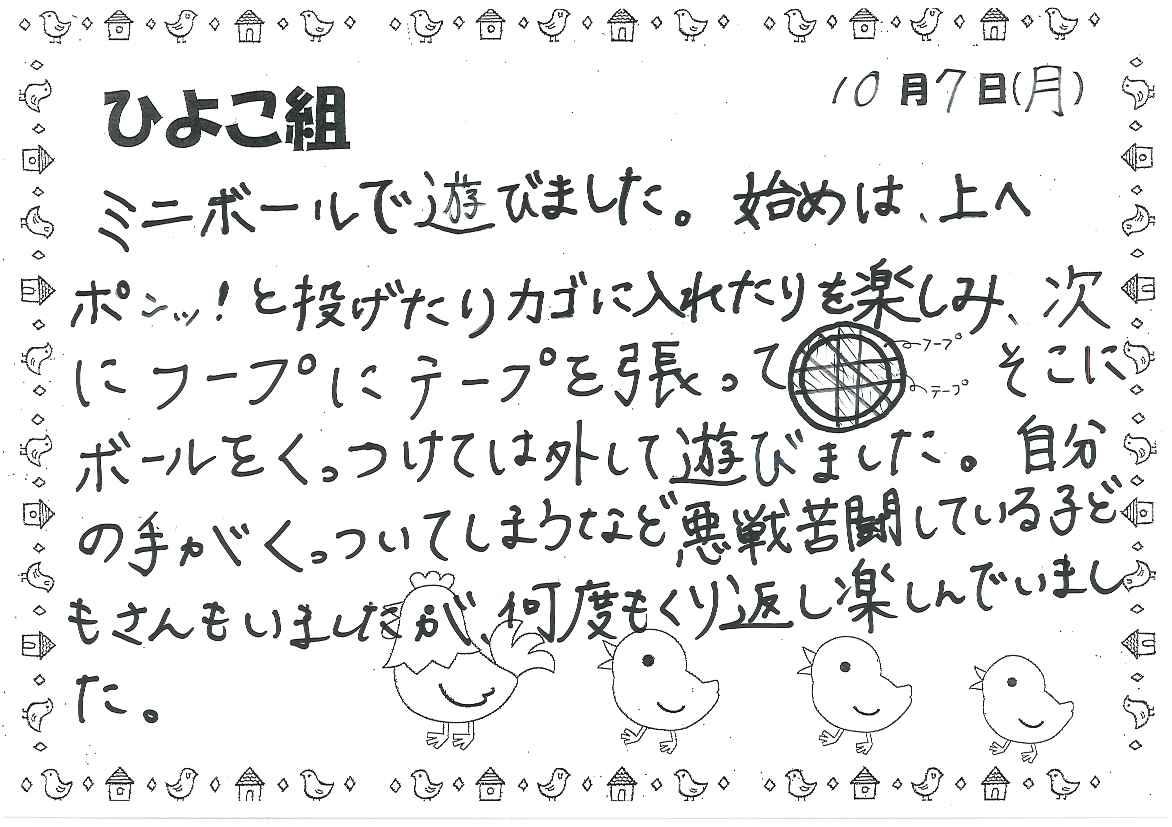 10月7日(月)
ひよこ組
ミニボールで遊びました。始めは、上へ
ポンッ！と投げたりカゴに入れたりを楽しみ、次
にフープにテープを張って
フープ
テープ
そこに
ボールをくっつけては外して遊びました。自分
の手がくっついてしまうなど悪戦苦闘している子ど
もさんもいましたが、何度もくり返し楽しんでいまし
た。